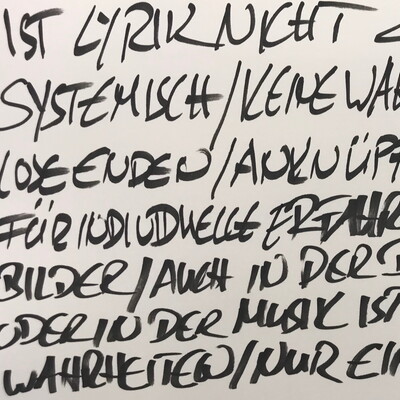 IST LYRIK NICHT
SYSTEMISCH/KEINE WAH
LOSE ENDEN/ANKNÜPF
FÜR INDIVIDUELLE ERFAHR
BILDER/AUCH IN DER
ODER IN DER MUSIK IST
WAHRHEITEN/NUR EIN